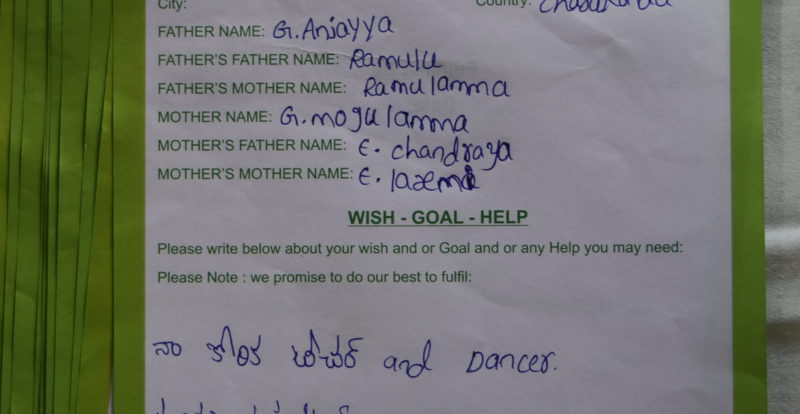 City: Country:
FATHER NAME: G. Anjayya
FATHER'S FATHER NAME: Ramulu
FATHER'S MOTHER NAME: Ramulamma
MOTHER NAME: G. mogulamma
MOTHER'S FATHER NAME: E. chandraya
MOTHER'S MOTHER NAME: E. laxemi
WISH - GOAL - HELP
Please write below about your wish and or Goal and or any Help you may need:
Please Note : we promise to do our best to fulfil:
నా కోరిక టీచర్ and Dancer.